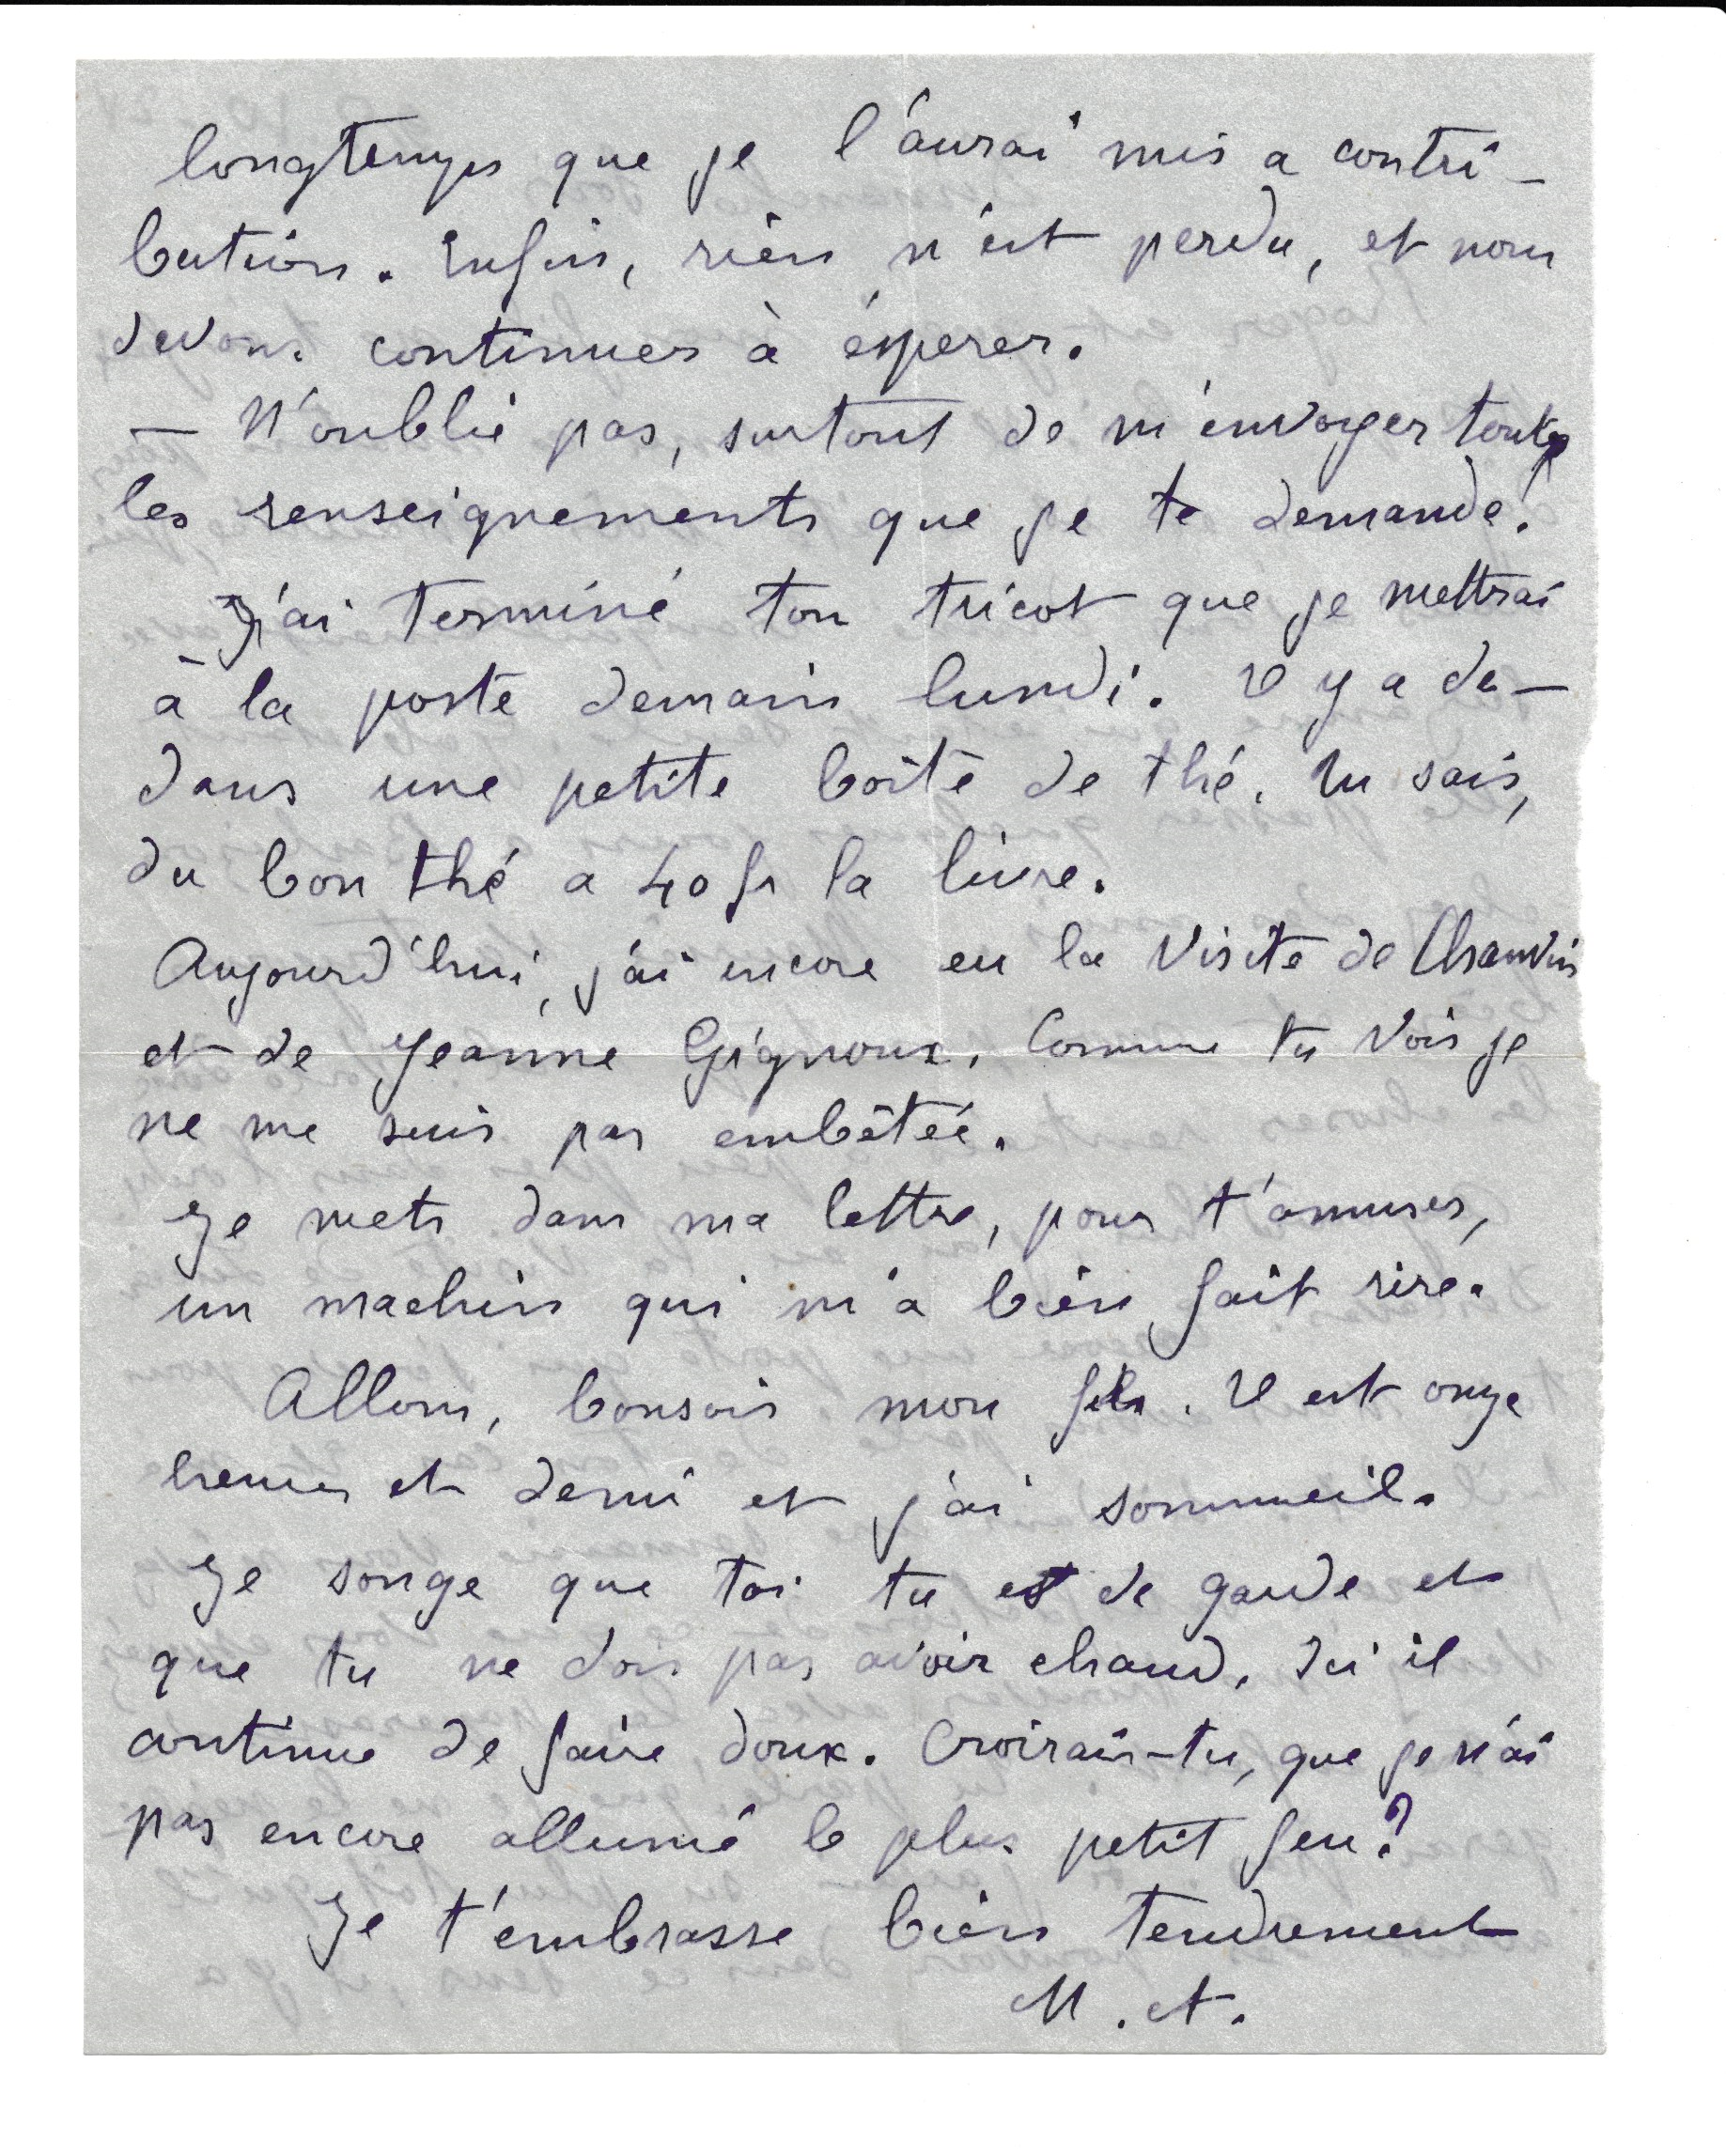 longtemps que je l'aurai mis a contri-
bution. Enfin, rien n'est perdu, et nous
devons continuer à ésperer.
— N'oublie pas, surtout de m'envoyer toutes
les renseignements que je te demande.
J'ai terminé ton tricot que je mettrai
à la poste demain lundi. Il y a de-
dans une petite boîte de thé. Tu sais,
du bon thé a 40 fr la livre.
Aujourd'hui, j'ai encore eu la visite de Chauvin
et de Jeanne Gignoux. Comme tu vois je
ne me suis pas embêtée.
Je mets dans ma lettre, pour t'amuser,
un machin qui m'a bien fait rire.
Allons, bonsoir mon fils. Il est onze
heures et demi et j'ai sommeil.
Je songe que toi tu es de garde et
que tu ne dois pas avoir chaud. Ici il
continue de faire doux. Croirais-tu, que je n'ai
pas encore allumé le plus petit feu?
Je t'embrasse bien tendrement
M. A.